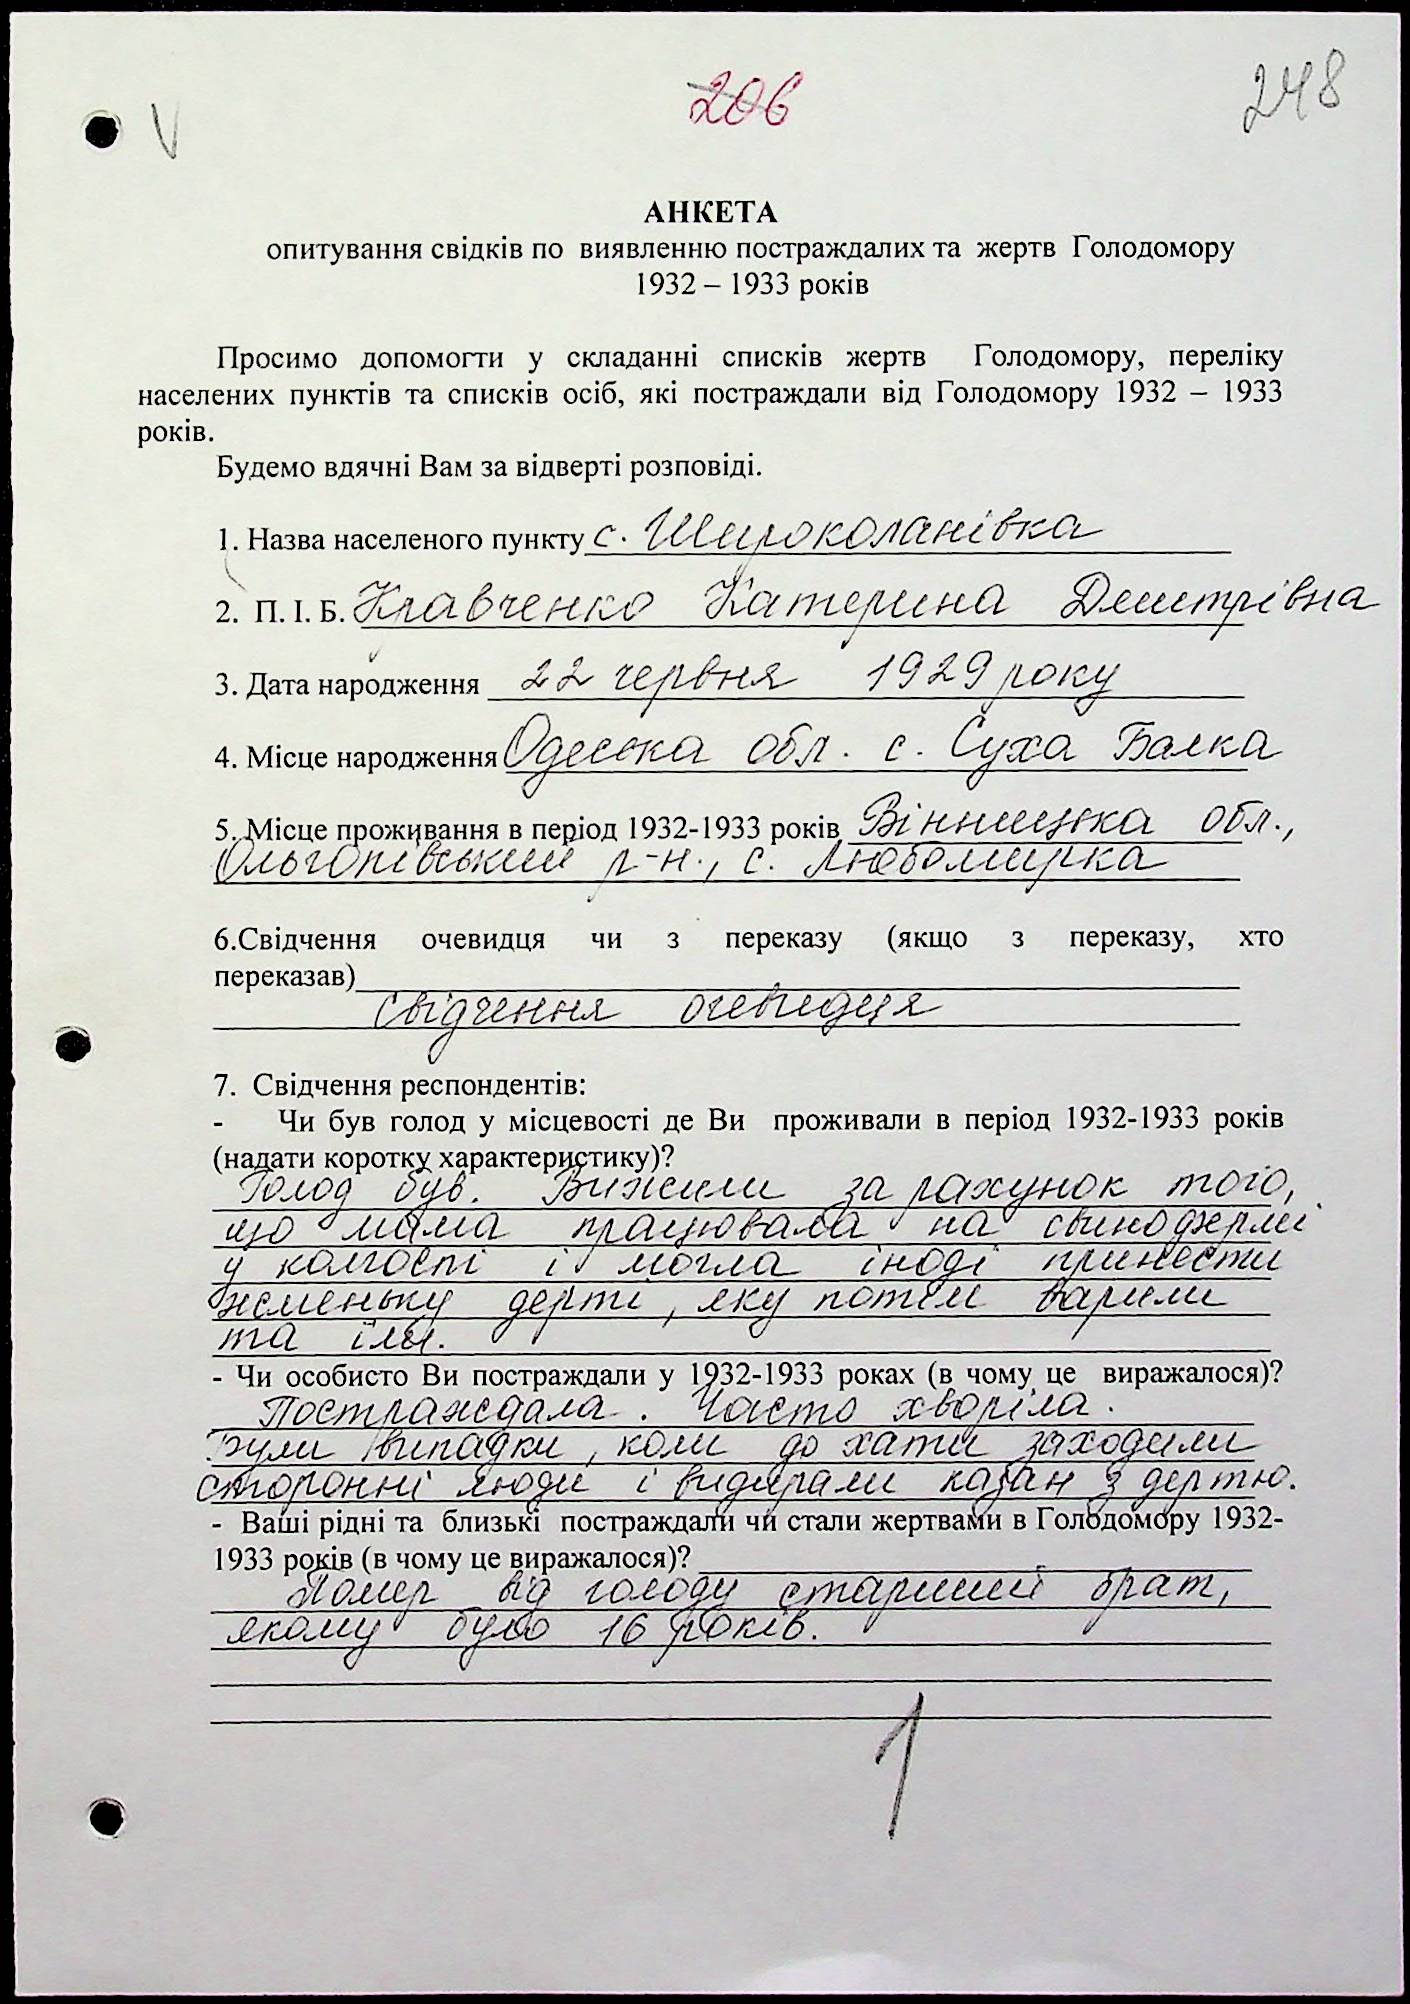 206
248
V
АНКЕТА
опитування свідків по виявленню постраждалих та жертв Голодомору
1932 – 1933 років
Просимо допомогти у складанні списків жертв Голодомору, переліку
населених пунктів та списків осіб, які постраждали від Голодомору 1932 – 1933
років.
Будемо вдячні Вам за відверті розповіді.
1. Назва населеного пункту с. Широколанівка
2. П. І. Б. Кравченко Катерина Дмитрівна
3. Дата народження 22 червня 1929 року
4. Місце народження Одеська обл. с. Суха Балка
5. Місце проживання в період 1932-1933 років Вінницька обл.,
Ольгопівський р-н., с. Любомирка
6.Свідчення очевидця чи з переказу (якщо з переказу, хто
переказав)
свідчення очевидця
7. Свідчення респондентів:
- Чи був голод у місцевості де Ви проживали в період 1932-1933 років
(надати коротку характеристику)?
Голод був. Вижили за рахунок того,
що мама працювала на свинофермі
у колгоспі і могла іноді принести
жменьку дерті, яку потім варили
та їли.
- Чи особисто Ви постраждали у 1932-1933 роках (в чому це виражалося)?
Постраждала. Часто хворіла.
Були випадки, коли до хати заходили
сторонні люди і видирали казан з дертю.
- Ваші рідні та близькі постраждали чи стали жертвами в Голодомору 1932-
1933 років (в чому це виражалося)?
Помер від голоду старший брат,
якому було 16 років.
1